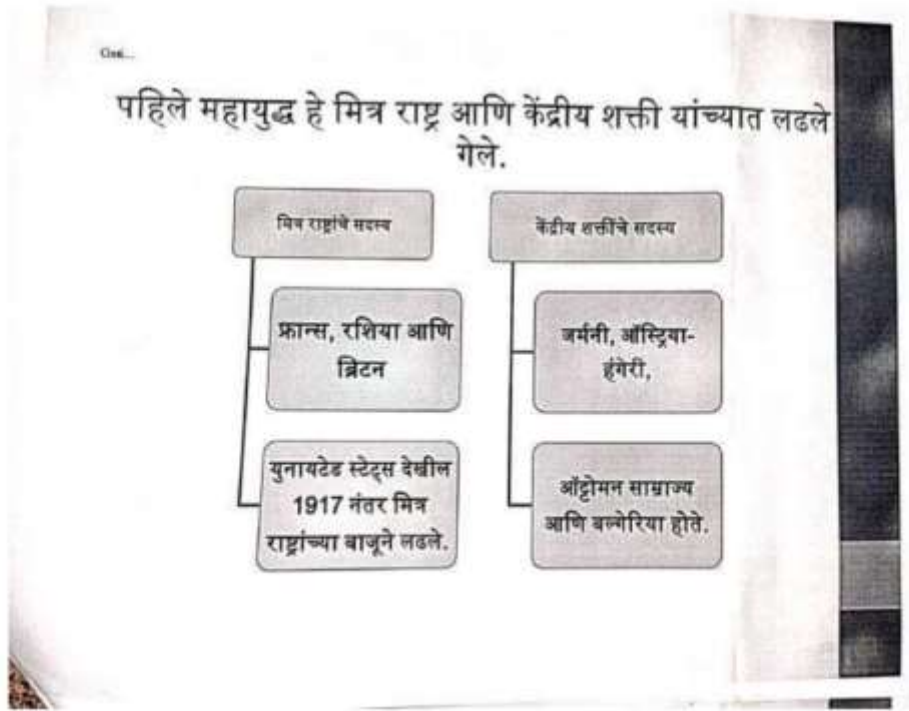 पहिले महायुद्ध हे मित्र राष्ट्र आणि केंद्रीय शक्ती यांच्यात लढले
गेले.
मित्र राष्ट्रांचे सदस्य
फ्रान्स, रशिया आणि
ब्रिटन
युनायटेड स्टेट्स देखील
1917 नंतर मित्र
राष्ट्रांच्या बाजूने लढले.
केंद्रीय शक्तींचे सदस्य
जर्मनी, ऑस्ट्रिया-
हंगेरी,
ऑट्टोमन साम्राज्य
आणि बल्गेरिया होते.